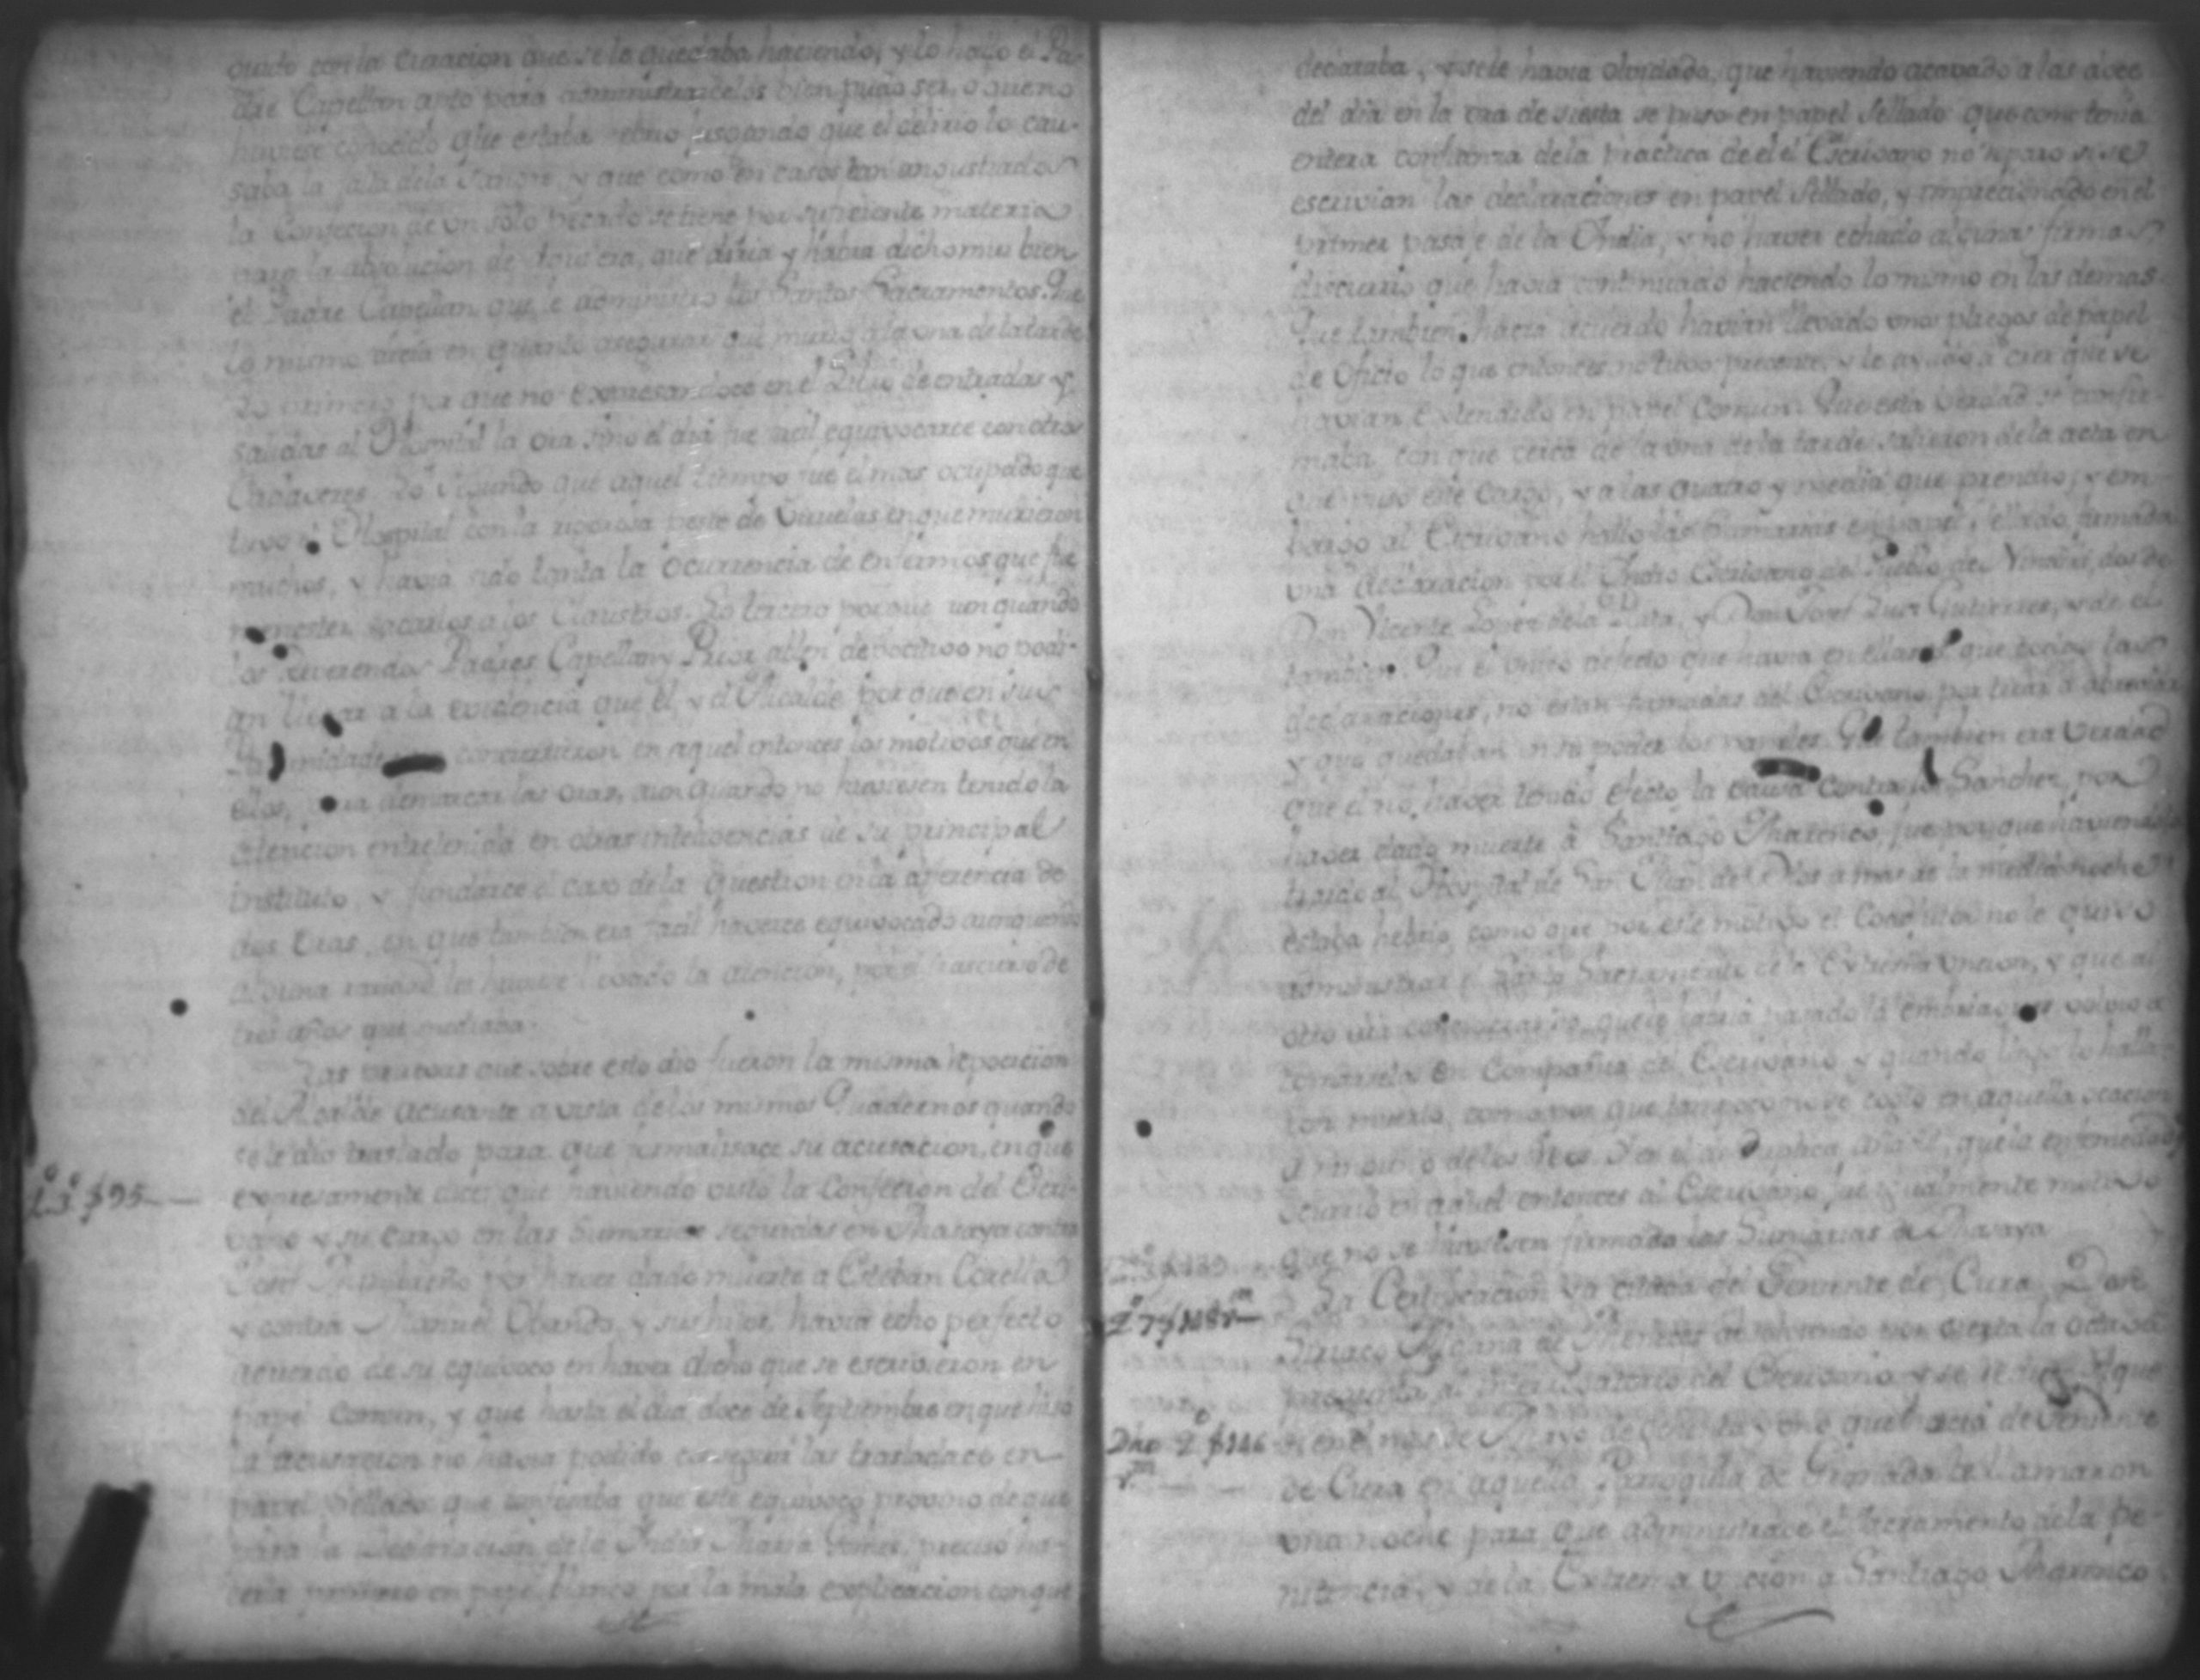 con la curacion que se le quedaba haciendo, y lo hallo el Pa-
dre Capellan apto para administrarcelos bien pudo ser, o que no
huviese conocido que estaba que el delirio lo cau-
saba la falta dela Sangre, y que como en casos tan angustiados
la Confecion de un solo pecado se tiene por suficiente materia
para la absolucion de que diria y habia dicho mui bien
el Padre Capellan que le administro los Santos Sacramentos. Que
lo mismo decia en quanto asegurar que murio a la una de la tarde
Lo primero por que no expresandoce en el Libro de entradas y
salidas al Hospital la ora sino el dia fue facil equivocarce con otros
Cadaveres. Lo Segundo que aquel tiempo fue el mas ocupado que
tuvo el Hospital con la rigorosa peste de Viruelas en que murieron
muchos, y havia sido tanta la ocurrencia de enfermos que fue
menester sacarlos a los Claustros. Lo tercero porque aun quando
los Reverendos Padres Capellan y Prior no podi-
an llegar a la evidencia que el, y el Alcalde por que en sus
concurrieron en aquel entonces los motivos que en
ellos, para demarcar las oras, aun quando no huviesen tenido la
atencion entretenida en otras inteligencias de su principal
instituto, y fundarce el caso dela question en la diferencia de
dos oras, en que tambien era facil haverce equivocado aunque no
alguna les huviese llevado la atencion, por el trascurso de
tres años que mediaba.
Las pruevas que sobre esto dio fueron la misma repocicion
del Alcalde acusante a vista de los mismos Quadernos quando
se le dio traslado para que formalisace su acusacion, en que
1º 3º f 95 — expresamente dice: que haviendo visto la Confecion del Escri-
vano y su cargo en las Sumarias seguidas en Masaya contra
Josef por haver dado muerte a Esteban Corella
y contra Manuel Obando, y sus hijos, havia echo perfecto
acuerdo de su equivoco en haver dicho que se escrivieron en
papel Comun, y que hasta el dia doce de Septiembre en que hiso
la acusacion no havia podido conseguir las trasladace en
papel Sellado que confesaba que este equivoco provino de que
para la Declaracion de la India Maria preciso ha-
cerla primero en papel blanco por la mala explicacion con que
declaraba, y se le havia olvidado, que haviendo acavado a las doce
del dia en la ora de siesta se puso en papel Sellado que como tenia
entera confianza dela practica de el el Escrivano no reparo si se
escrivian las declaraciones en papel Sellado, y imprecionado en el
primer pasaje de la India, y no haver echado alguna firma
discurrio que havia continuado haciendo lo mismo en las demas.
Que tambien hacia acuerdo havian llevado unos pliegos de papel
de Oficio lo que entonces no tuvo precente, y le ayudo a creer que se
havian extendido en papel Comun. Que esta verdad se confir-
maba con que cerca de la una de la tarde salieron dela acta en
que puso este Cargo, y a las quatro y media que prendio, y em-
bargo al Escrivano hallo las Sumarias en papel Sellado firmada
una declaracion por el Indio Escrivano del Pueblo de Nindiri, dos de
Don Vicente Lopez dela Plata, y Don Josef Luis Gutierres, y de el
tambien. Que el unico defecto que havia en ellas es que todas las
declaraciones, no estan firmadas del Escrivano por tirar a abreviar
y que quedaban en su poder los papeles. Que tambien era verdad
que el no haver tenido efecto la causa contra Sanches, por
haver dado muerte a Santiago Marenco, fue por que haviendolo
traido al Hospital de San Juan de Dios a mas de la media noche
estaba hebrio, como que por este motivo el Confesor no le quiso
administrar el Santo Sacramento dela Extrema Uncion, y que al
otro dia que le havia pasado la embriagues volvio a
tomarsela en Compañia del Escrivano, y quando llego lo halla-
ron muerto, como por que tampoco se cogio en aquella ocacion
a ninguno de los Reos. Y en el añade que la enfermedad
ocurrio en aquel entonces al Escrivano, fue igualmente motivo
que no se huviesen firmado las Sumarias de Masaya
2º 7 f 118 La Certificacion ya citada del Teniente de Cura Don
absolviendo por cierta la octava
pregunta al interrogatorio del Escrivano, y se le dice que
Dho 2º f 146 en el mes de Mayo de ochenta y uno que hacia de Teniente
de Cura en aquella Parroquia de Granada le llamaron
una noche para que administrace el Sacramento dela pe-
nitencia, y de la Extrema Uncion a Santiago Marenco